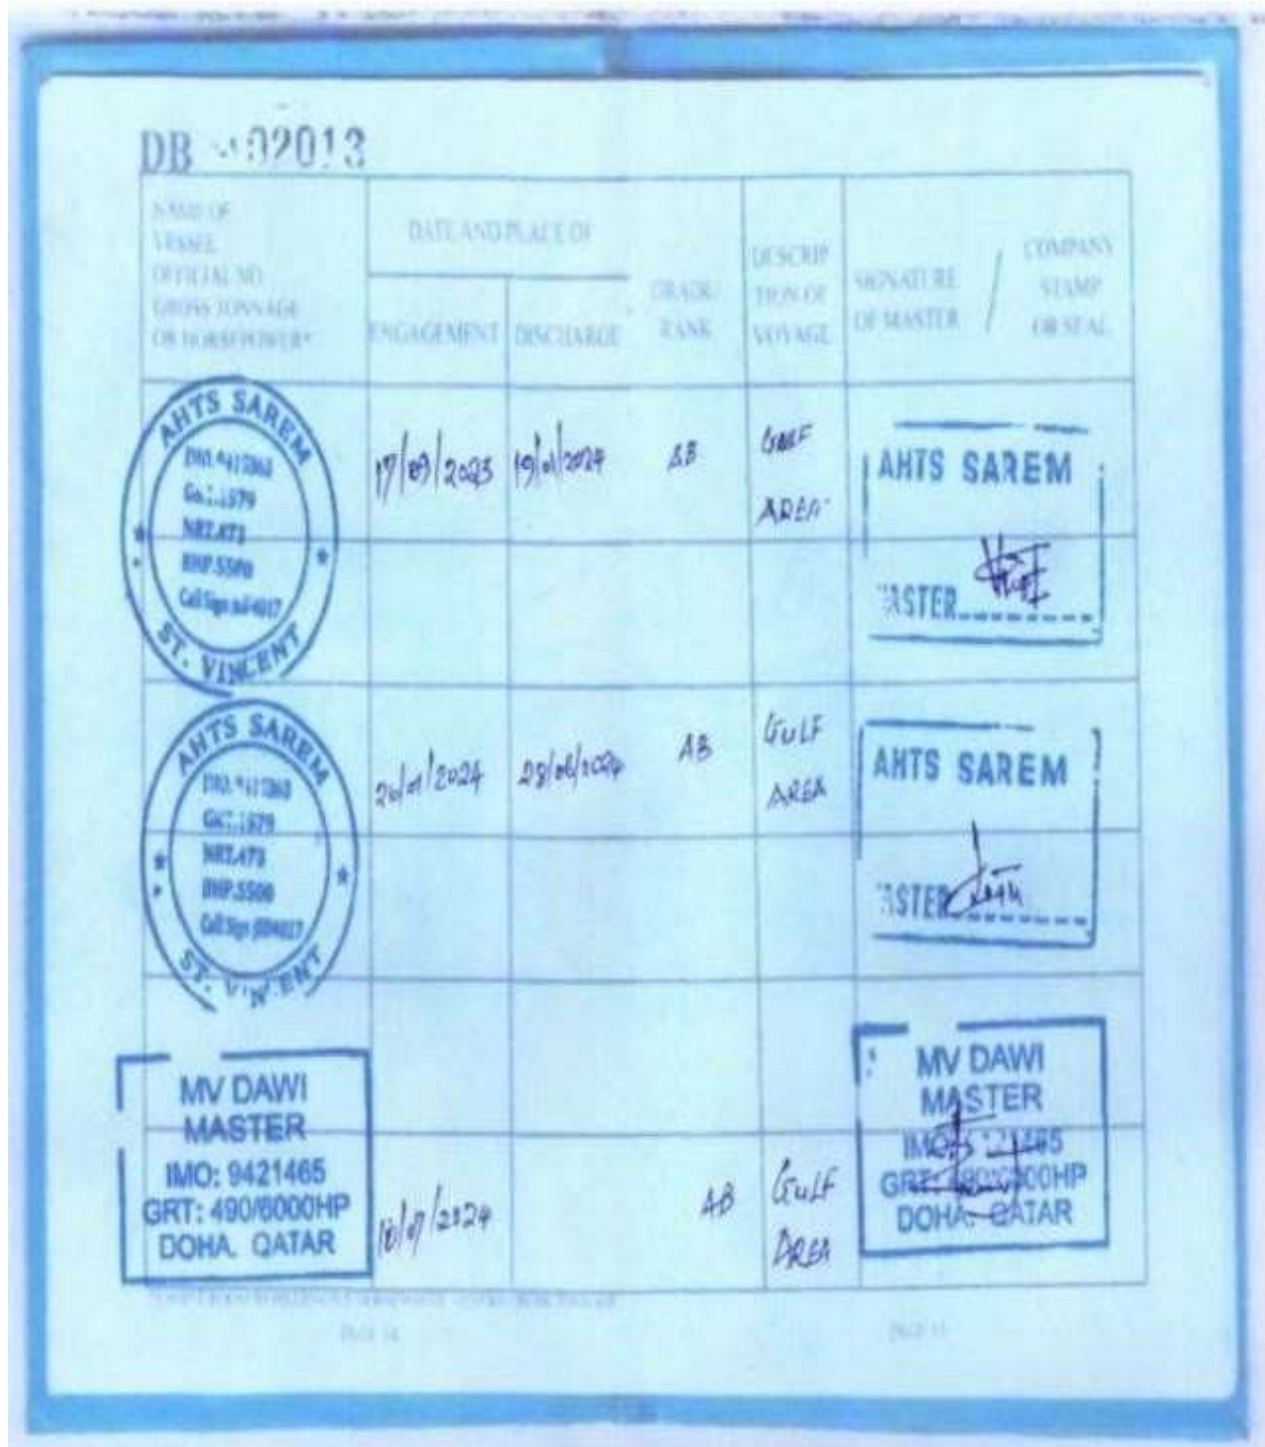 DB 02013
NAME OF
VESSEL
OFFICIAL NO
GROSS TONNAGE
OR HORSEPOWER*
DATE AND PLACE OF
ENGAGEMENT
DISCHARGE
GRADE/
RANK
DESCRIP
TION OF
VOYAGE
SIGNATURE
OF MASTER
/
COMPANY
STAMP
OR SEAL
AHTS SAREM
NRT.473
BHP.5500
Call Sign
ST. VINCENT
17/09/2023
19/01/2024
AB
GULF
AREA
AHTS SAREM
MASTER
AHTS SAREM
NRT.473
BHP.5500
Call Sign
ST. VINCENT
20/01/2024
28/06/2024
AB
GULF
AREA
AHTS SAREM
MASTER
MV DAWI
MASTER
IMO: 9421465
GRT: 490/6000HP
DOHA. QATAR
18/07/2024
AB
GULF
AREA
MV DAWI
MASTER
IMO: 9421465
GRT: 490/6000HP
DOHA. QATAR
PAGE 14
PAGE 15